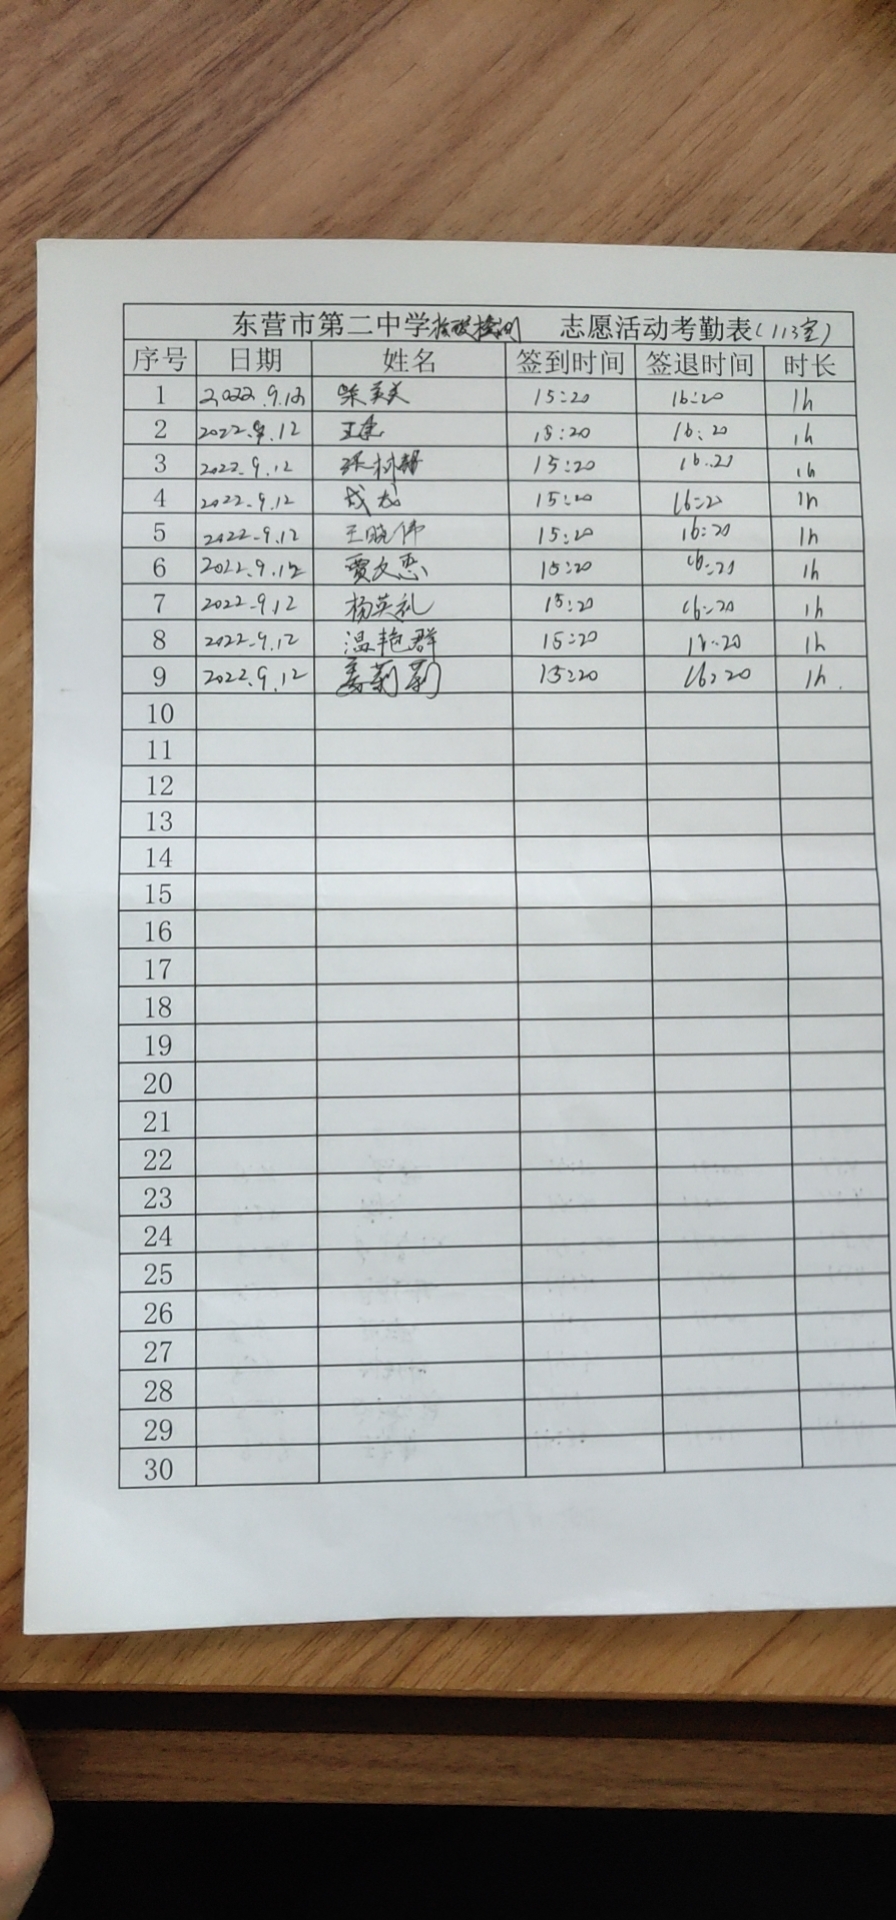 东营市第二中学核酸检测 志愿活动考勤表(113室)
序号 日期 姓名 签到时间 签退时间 时长
1 2022.9.12 柴美美 15:20 16:20 1h
2 2022.9.12 15:20 16:20 1h
3 2022.9.12 15:20 16:20 1h
4 2022.9.12 15:20 16:20 1h
5 2022.9.12 王晓伟 15:20 16:20 1h
6 2022.9.12 贾文惠 15:20 16:20 1h
7 2022.9.12 杨英礼 15:20 16:20 1h
8 2022.9.12 温艳群 15:20 16:20 1h
9 2022.9.12 姜莉莉 15:20 16:20 1h
10
11
12
13
14
15
16
17
18
19
20
21
22
23
24
25
26
27
28
29
30